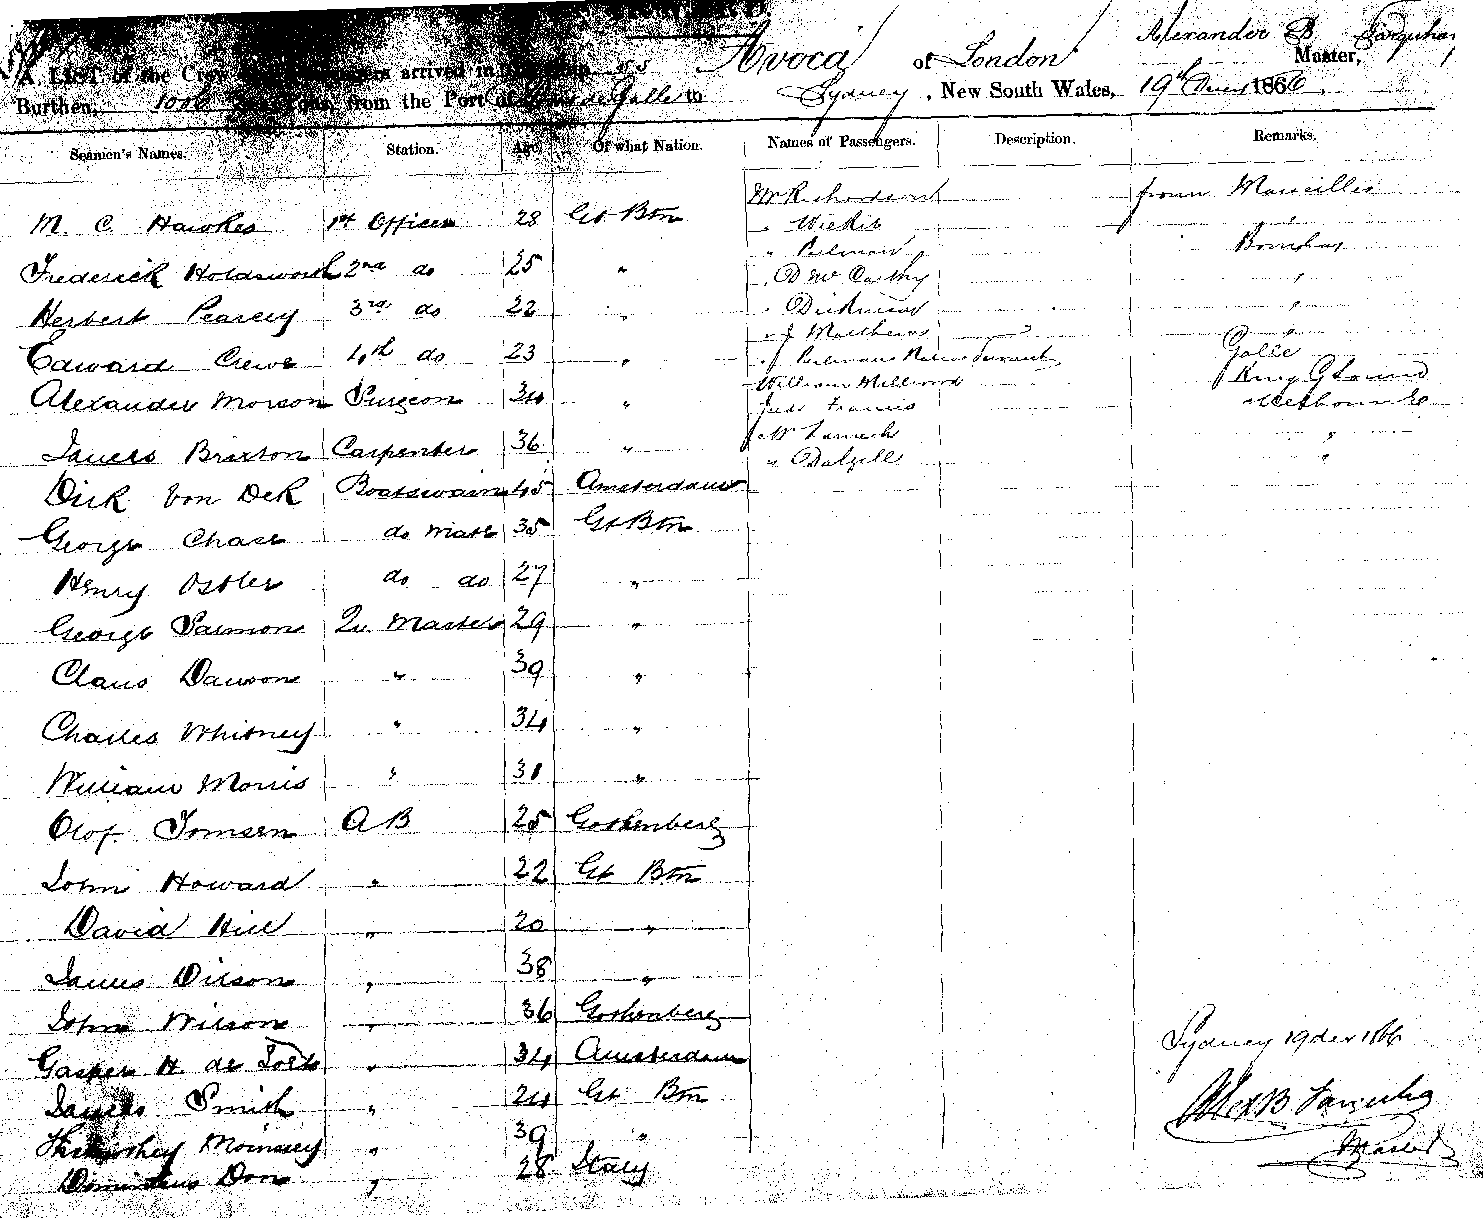 A LIST of the Crew and Passengers arrived in the Ship SS Avoca of London Alexander B Farquhar Master,
Burthen, Tons, from the Port of Point de Galle to Sydney, New South Wales, 19th Decr 1866
Seamen's Names. Station. Age Of what Nation. Names of Passengers. Description. Remarks.
M. C Hawkes 1st Officer 28 Gt Btn
Frederick Holdsworth 2nd do 25 "
Herbert Pearcey 3rd do 22 "
Edward Crewe 4th do 23 "
Alexander Morson Surgeon 34 "
James Brixton Carpenter 36 "
Dirk Von Dek Boatswain 45 Amsterdam
George Chase do Mate 35 Gt Btn
Henry Ostler do do 27 "
George Salmon Qr Master 29 "
Claus Dawson " 39 "
Charles Whitney " 34 "
William Morris " 31 "
Olof Tomsen A B 25 Gothenberg
John Howard " 22 Gt Btn
David Hill " 20 "
James Dilson " 38 "
John Wilson " 36 Gothenberg
Gasper H. de " 34 Amsterdam
James Smith " 24 Gt Btn
" 39 "
Don " 28 Italy
Mr Richardson from Marseilles
" "
" Perlman Bombay
" D McCarthy "
" Dickinson "
" J Matthews "
" J Perlmans Native Servant Galle
William Millwood King G Sound
Judo Francis Melbourne
Mr "
" Dalzell "
Sydney 19 dec 1866
Alex B Farquhar
Master